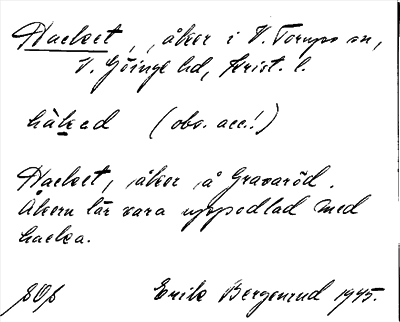 Hacket, åker i V. Torups sn,
V. Göinge hd, Krist. l.
häked (obs. acc.!)
Hacket, åker å Gravaröd.
Åkern lär vara uppodlad med
hacka.
Erik Bergenrud 1945.